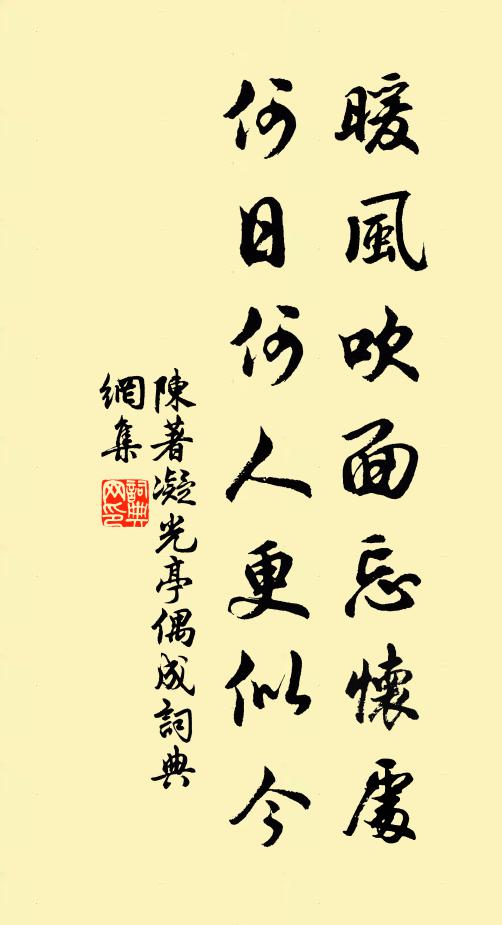 暖風吹面忘懷處
何日何人更似今
陳著凝光亭偶成詞典
網集
詞典網印